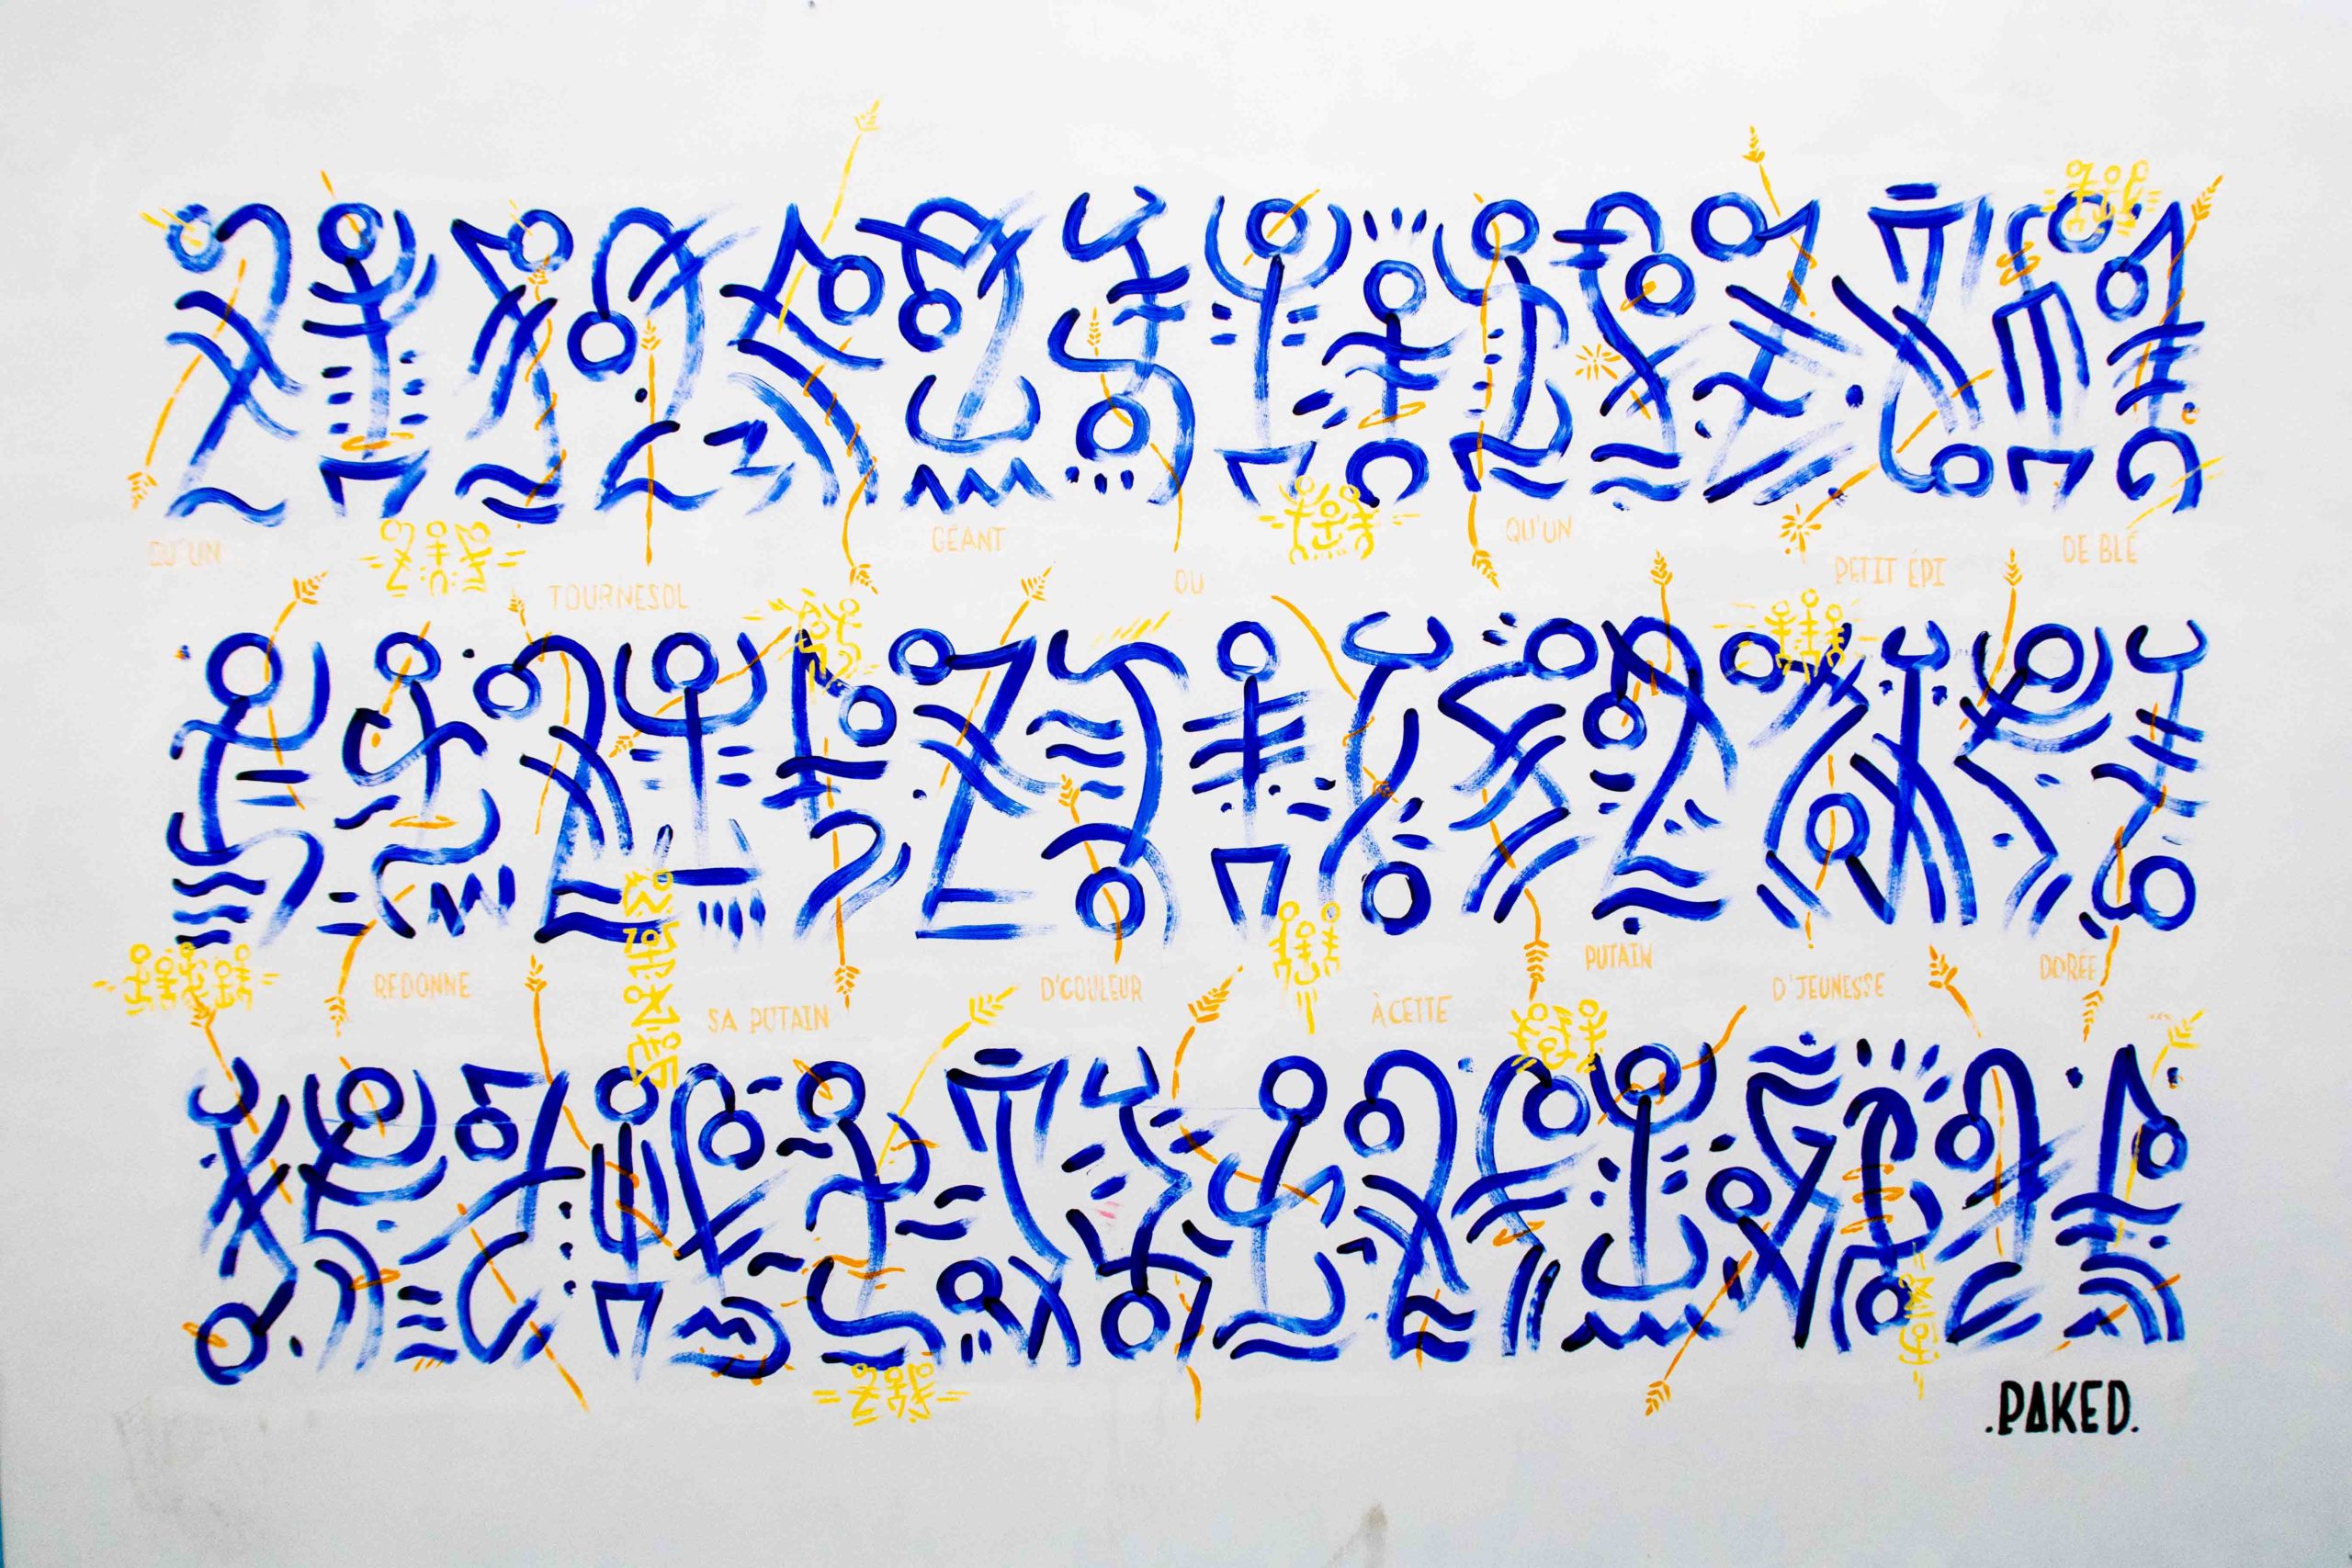 QU'UN TOURNESOL GÉANT OU QU'UN PETIT ÉPI DE BLÉ
REDONNE SA PUTAIN D'COULEUR À CETTE PUTAIN D'JEUNESSE DORÉE
.PAKED.